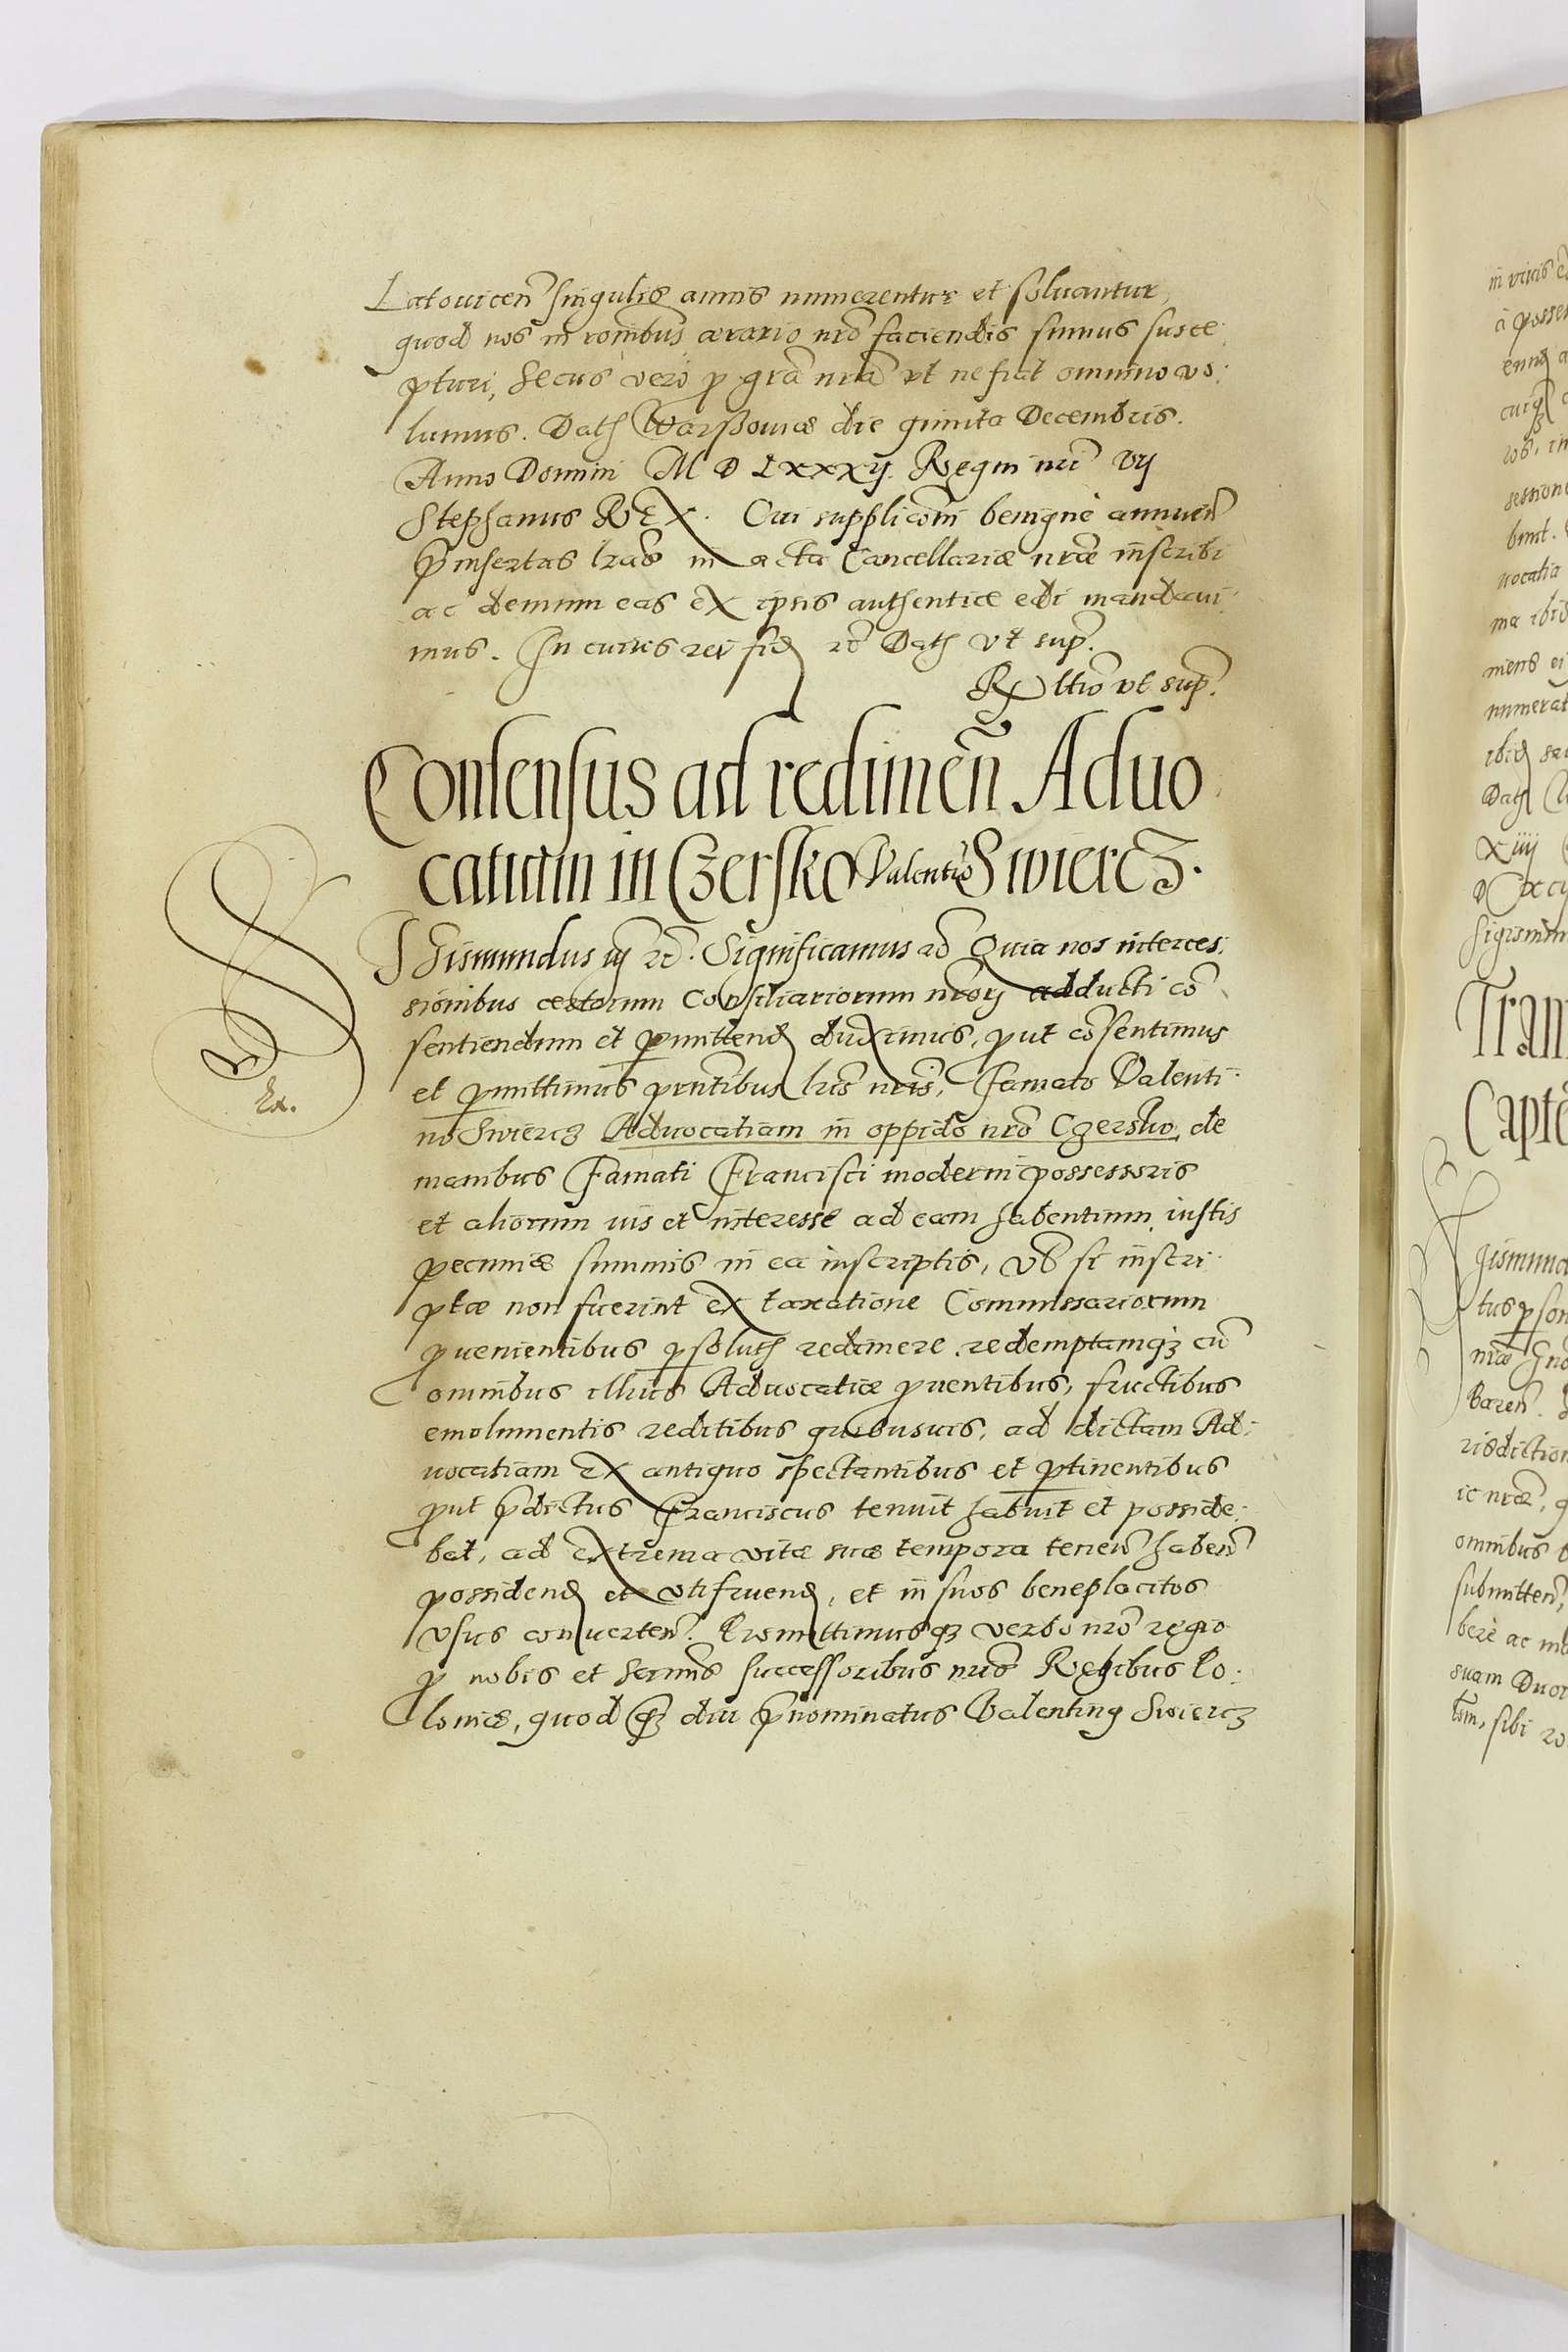 Latouicen̄ singulis annis numerentur et soluantur,
quod nos in rōnibus ærario nr̄o faciendis sumus susce
pturi, Secus vero p gr̄a nr̄a vt ne fiat omnino vo:
lumus. Dat Warssouiæ die quinta Decembris.
Anno Domini M D LXXXij. Regni nr̄i Vij
Stephanus REX. Cui supplicōni benigne annuen̄
p̄insertas lr̄as in acta Cancellariæ nr̄æ inscribi
ac demum eas ex ipsis authentice edi mandaui
mus. In cuius rei fid rc̄ Dat vt sup̄.
Rltio vt sup̄.
Consensus ad redimen̄ Aduo
catiam in Czersko Valentino Swiercz.
SIGismundus iij rc̄. Significamus rc̄ Quia nos interces:
sionibus certorum Consiliariorum nr̄orum adducti cō
sentiendum et pmittend duximus, put cōsentimus
et pmittimus pn̄tibus lr̄is nr̄is, Famato Valenti
no Swiercz Aduocatiam in oppido nr̄o Czersko, de
manibus Famati Francisci moderni possessoris
et aliorum ius et interesse ad eam habentium, iustis
pecuniæ summis in ea inscriptis, vł si inscri
ptæ non fuerint ex taxatione Commissariorum
puenientibus psolut redimere, redemptamq; cū
omnibus illius Aduocatiæ puentibus, fructibus
emolumentis reditibus quibusuis, ad dictam Ad:
uocatiam ex antiquo spectantibus et ptinentibus
put p̄dictus Franciscus tenuit habuit et posside:
bat, ad extrema vitæ suæ tempora tenen̄ haben̄
possidend et vtifruend, et in suos beneplacitos
vsus conuerten̄. Promittimusq; verbo nr̄o regio
p nobis et Serm̄is successoribus nr̄is Regibus Po:
loniæ, quod q̄ diu p̄nominatus Valentinꝯ Swiercz
Ex.